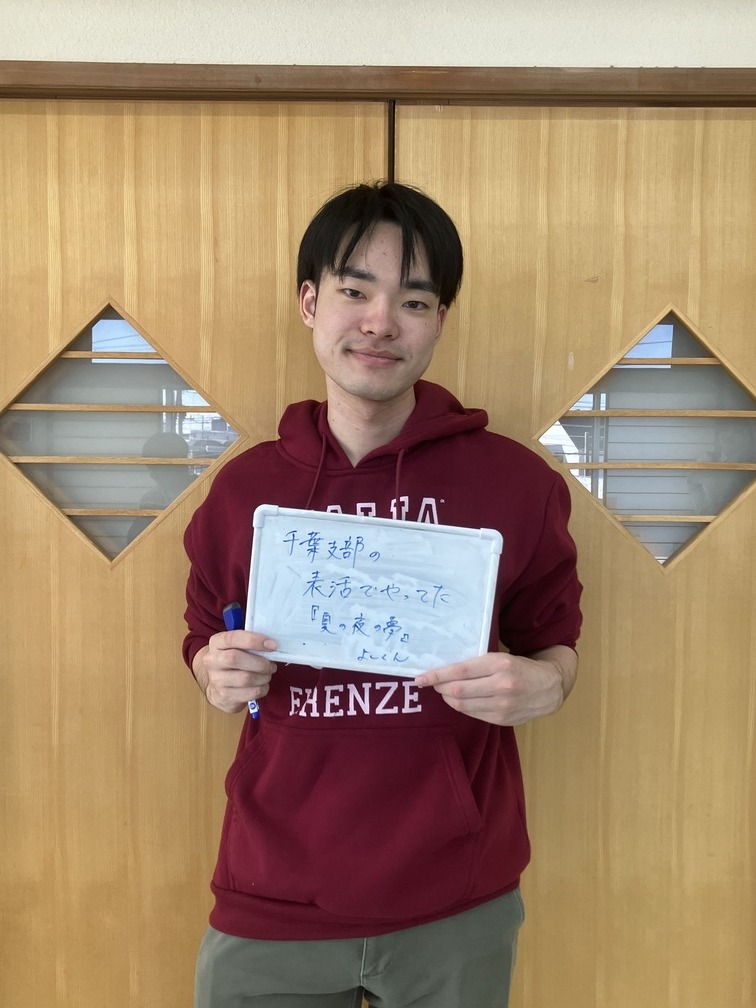 千葉支部の
表活でやってた
『夏の夜の夢』
よしくん
FIRENZE